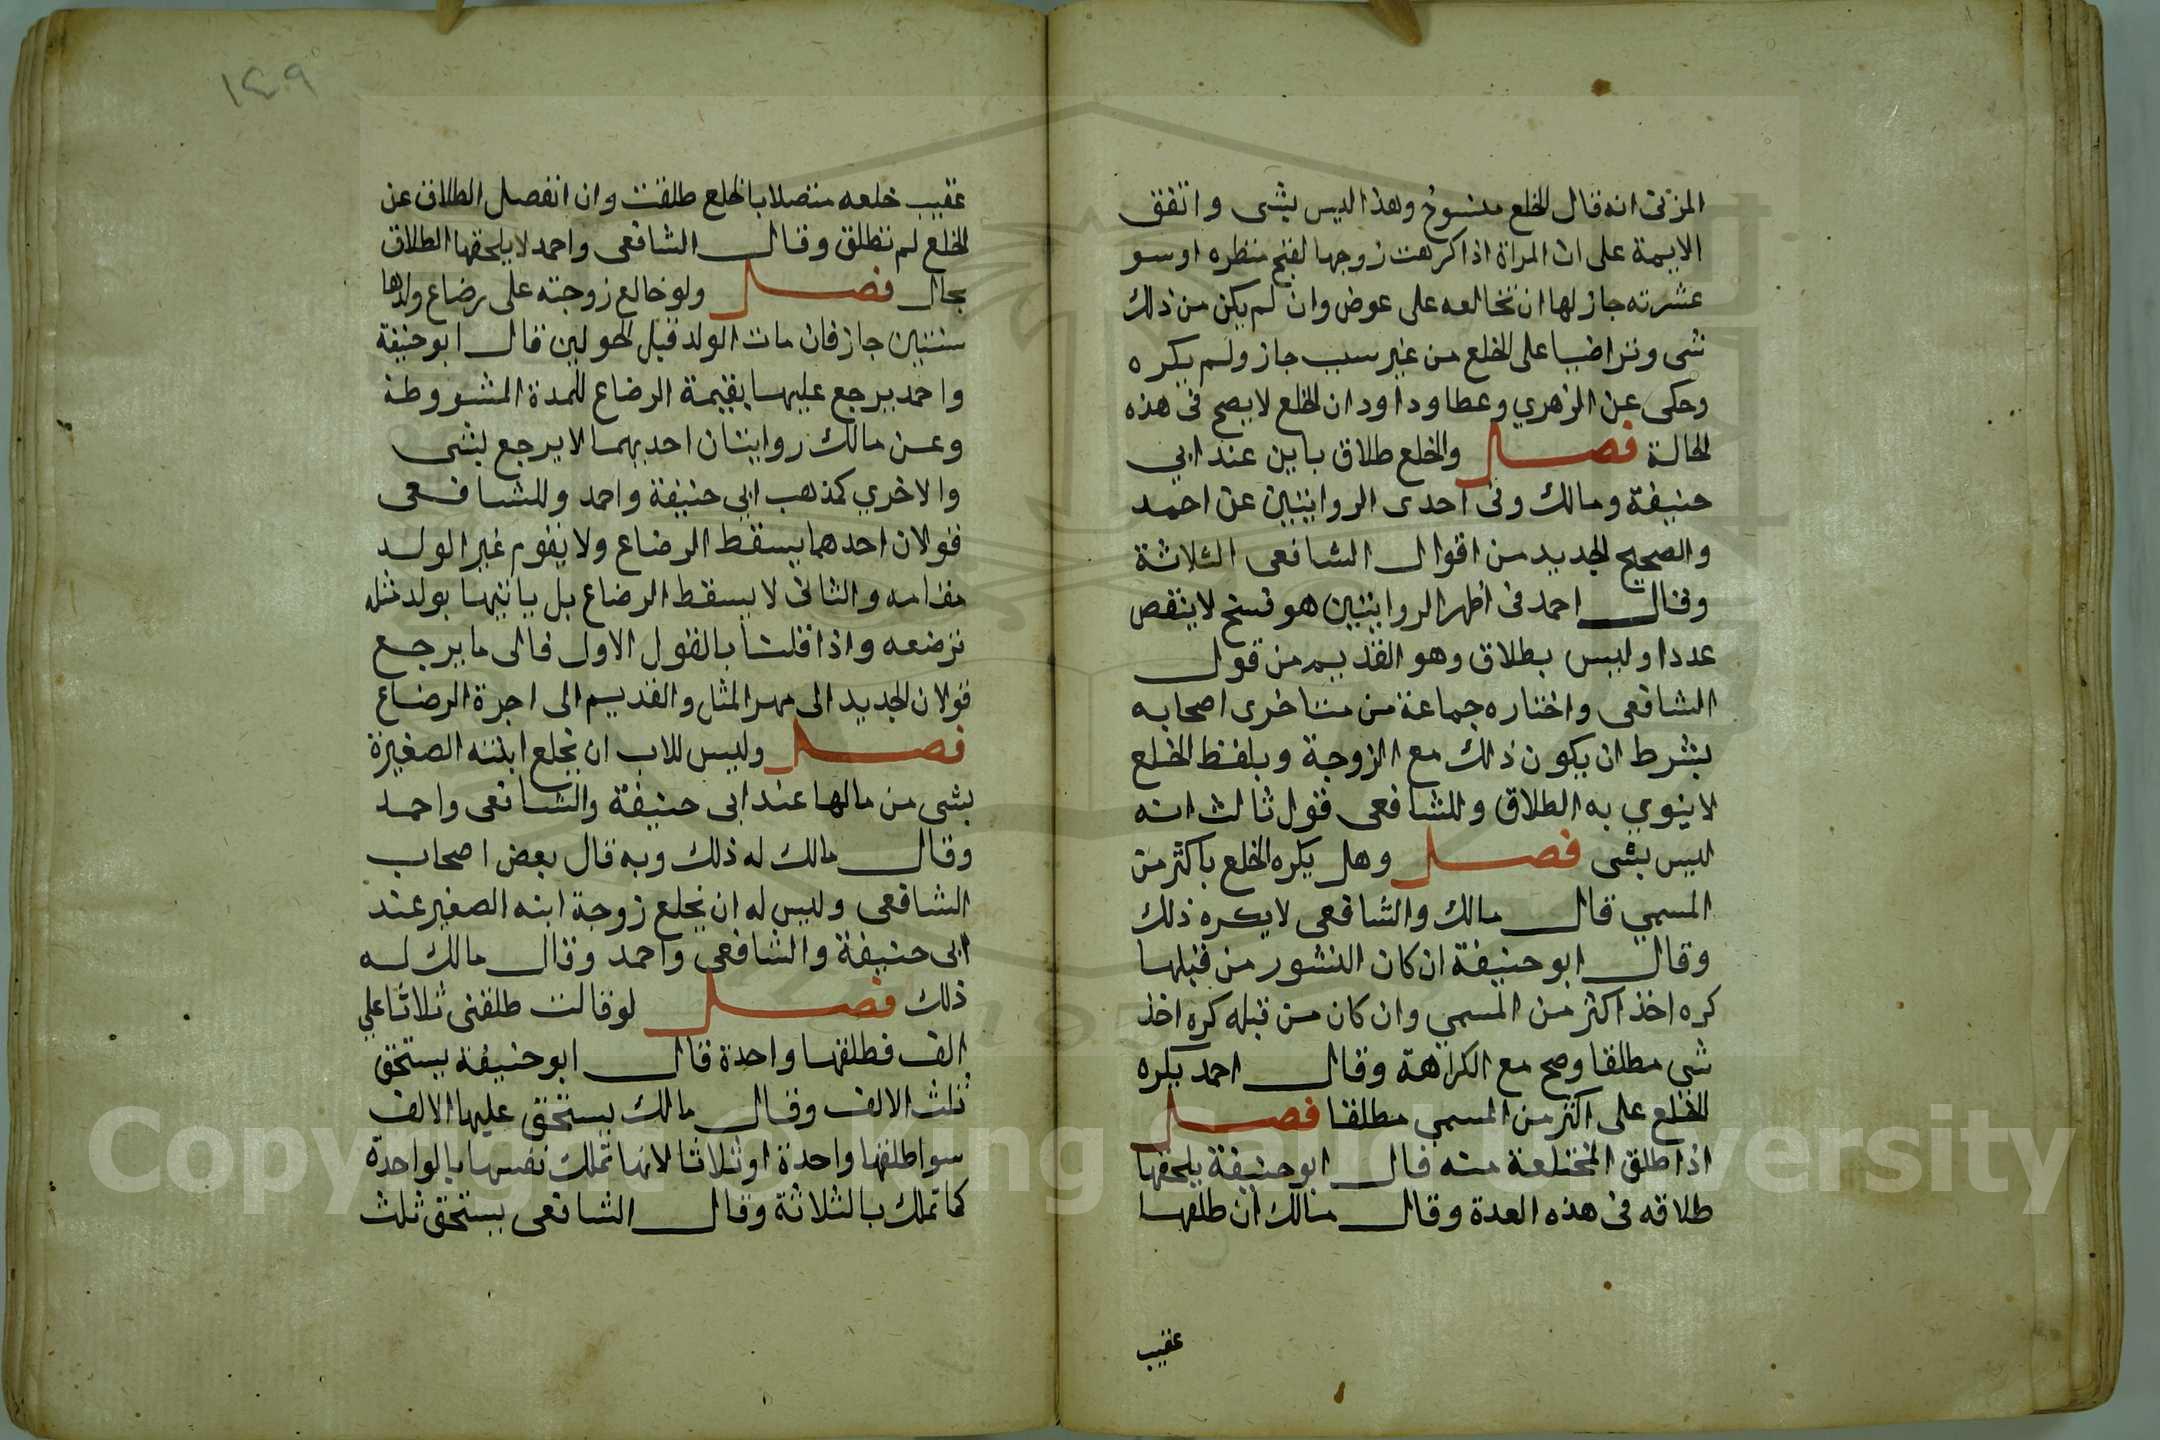 المزني انه قال الخلع منسوخ وهذا ليس بشي واتفق
الايمة على ان المراة اذا كرهت زوجها لقبح منظره او سو
عشرته جاز لها ان تخالعه على عوض وان لم يكن من ذلك
شي وتراضيا على الخلع من غير سبب جاز ولم يكره
وحكى عن الزهري وعطا وداود ان الخلع لا يصح فى هذه
الحالة فصل والخلع طلاق باين عند ابي
حنيفة ومالك وفى احدى الروايتين عن احمد
والصحيح الجديد من اقوال الشافعى الثلاثة
وقال احمد فى اظهر الروايتين هو فسخ لا ينقص
عددا وليس بطلاق وهو القديم من قول
الشافعى واختاره جماعة من متاخرى اصحابه
بشرط ان يكون ذلك مع الزوجة وبلفظ الخلع
لا ينوي به الطلاق وللشافعى قول ثالث انه
ليس بشى فصل وهل يكره الخلع باكثر من
المسمي قال مالك والشافعى لا يكره ذلك
وقال ابو حنيفة ان كان النشوز من قبلها
كره اخذ اكثر من المسمي وان كان من قبله كره اخذ
شي مطلقا وصح مع الكراهة وقال احمد يكره
الخلع على اكثر من المسمي مطلقا فصل
اذا طلق المختلعة منه قال ابو حنيفة يلحقها
طلاقه فى هذه العدة وقال مالك ان طلقها
عقيب
١٤٩
عقيب خلعه متصلا بالخلع طلقت وان انفصل الطلاق عن
الخلع لم تطلق وقال الشافعى واحمد لا يلحقها الطلاق
بحال فصل ولو خالع زوجته على رضاع ولدها
سنتين جاز فان مات الولد قبل الحولين قال ابو حنيفة
واحمد يرجع عليها بقيمة الرضاع للمدة المشروطة
وعن مالك روايتان احديهما لا يرجع بشى
والاخري كمذهب ابي حنيفة واحمد وللشافعى
قولان احدهما يسقط الرضاع ولا يقوم غير الولد
مقامه والثانى لا يسقط الرضاع بل ياتيها بولد مثله
ترضعه واذا قلنا بالقول الاول فالى ما يرجع
قولان الجديد الى مهر المثل والقديم الى اجرة الرضاع
فصل وليس للاب ان يخلع ابنته الصغيرة
بشى من مالها عند ابى حنيفة والشافعى واحمد
وقال مالك له ذلك وبه قال بعض اصحاب
الشافعى وليس له ان يخلع زوجة ابنه الصغير عند
ابى حنيفة والشافعى واحمد وقال مالك له
ذلك فصل لو قالت طلقنى ثلاثا علي
الف فطلقها واحدة قال ابو حنيفة يستحق
ثلث الالف وقال مالك يستحق عليها الالف
سوا طلقها واحدة او ثلاثا لانها تملك نفسها بالواحدة
كما تملك بالثلاثة وقال الشافعى يستحق ثلث
Copyright © King Saud University